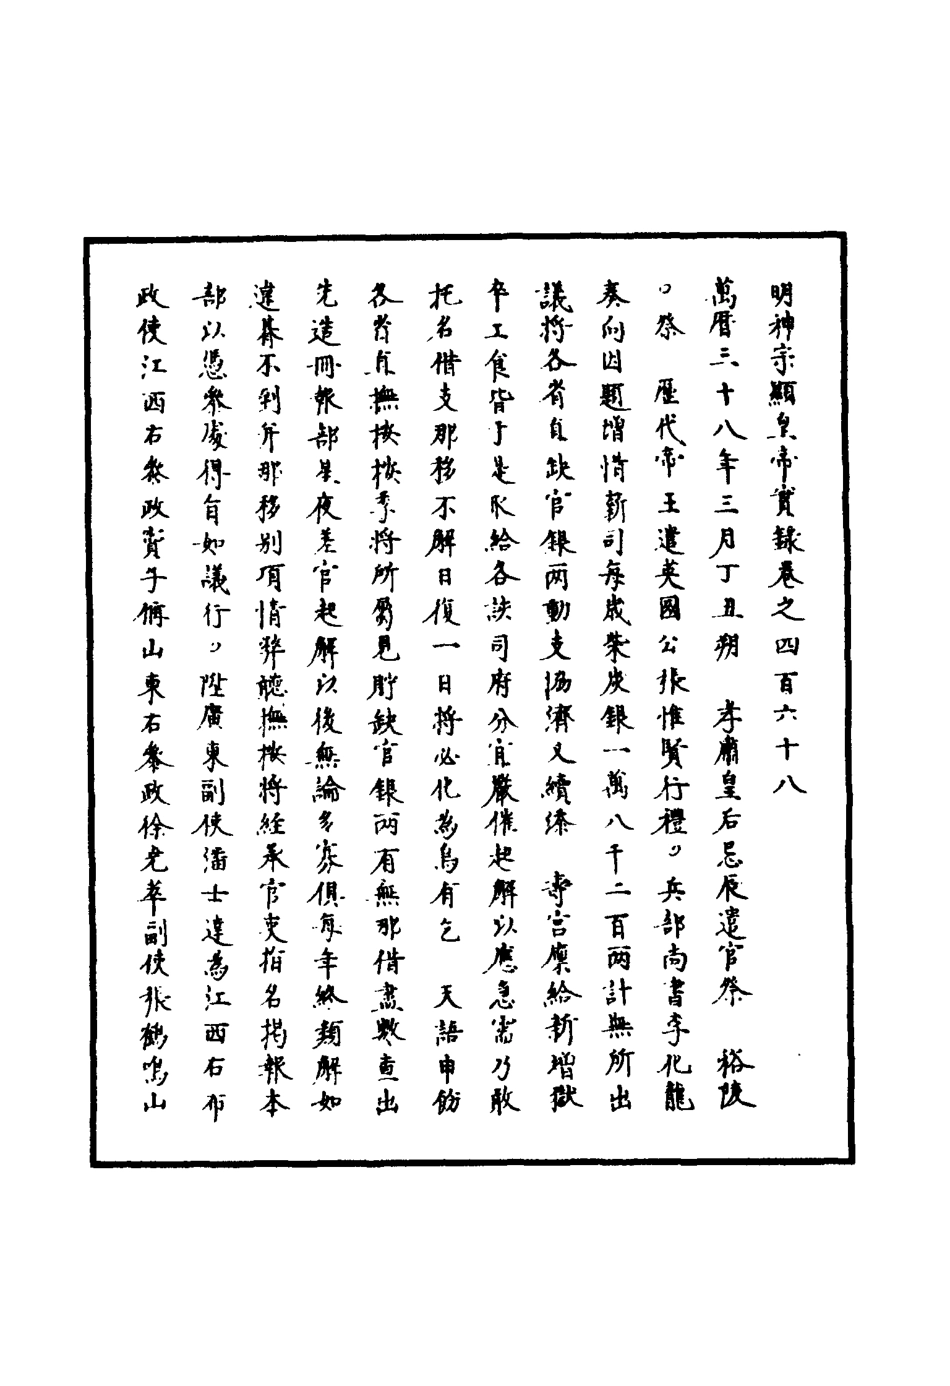 明神宗顯皇帝實錄卷之四百六十八
萬曆三十八年三月丁丑朔　孝肅皇后忌辰遣官祭　裕陵
○祭　歷代帝王遣英國公張惟賢行禮○兵部尚書李化龍
奏向因題增惜薪司每歲柴炭銀一萬八千二百兩計無所出
議將各省直缺官銀兩動支協濟又續添　壽宮廩給新增獄
卒工食皆于是取給各該司府分宜嚴催起解以應急需乃敢
托名借支那移不解日復一日將必化為烏有乞　天語申飭
各省直撫按按季將所屬見貯缺官銀兩有無那借盡數查出
先造冊報部星夜差官起解以後無論多寡俱每年終類解如
違碁不到并那移別項情弊聽撫按將經承官吏指名揭報本
部以憑參處得旨如議行○陞廣東副使潘士達為江西右布
政使江西右參政賁子偁山東右參政徐堯莘副使張鶴鳴山